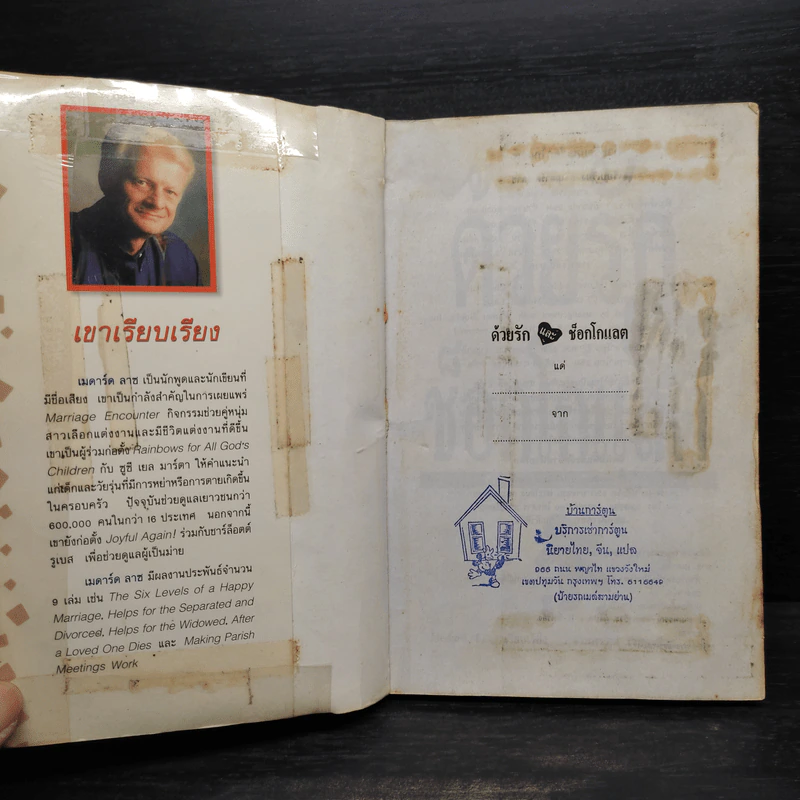 เขาเรียบเรียง
เมดาร์ด ลาซ เป็นนักพูดและนักเขียนที่
มีชื่อเสียง เขาเป็นกำลังสำคัญในการเผยแพร่
Marriage Encounter กิจกรรมช่วยคู่หนุ่ม
สาวเลือกแต่งงานและมีชีวิตแต่งงานที่ดีขึ้น
เขาเป็นผู้ร่วมก่อตั้ง Rainbows for All God's
Children กับ ซูซี เยล มาร์ตา ให้คำแนะนำ
แก่เด็กและวัยรุ่นที่มีการหย่าหรือการตายเกิดขึ้น
ในครอบครัว ปัจจุบันช่วยดูแลเยาวชนกว่า
600,000 คนในกว่า 16 ประเทศ นอกจากนี้
เขายังก่อตั้ง Joyful Again! ร่วมกับชาร์ล็อตต์
รูเบส เพื่อช่วยดูแลผู้เป็นม่าย
เมดาร์ด ลาซ มีผลงานประพันธ์จำนวน
9 เล่ม เช่น The Six Levels of a Happy
Marriage, Helps for the Separated and
Divorced, Helps for the Widowed, After
a Loved One Dies และ Making Parish
Meetings Work
ด้วยรัก และ ช็อกโกแลต
แด่
จาก
บ้านการ์ตูน
บริการเช่าการ์ตูน
นิยายไทย, จีน, แปล
966 ถนน พญาไท แขวงวังใหม่
เขตปทุมวัน กรุงเทพฯ โทร. 6116649
(ป้ายรถเมล์สามย่าน)